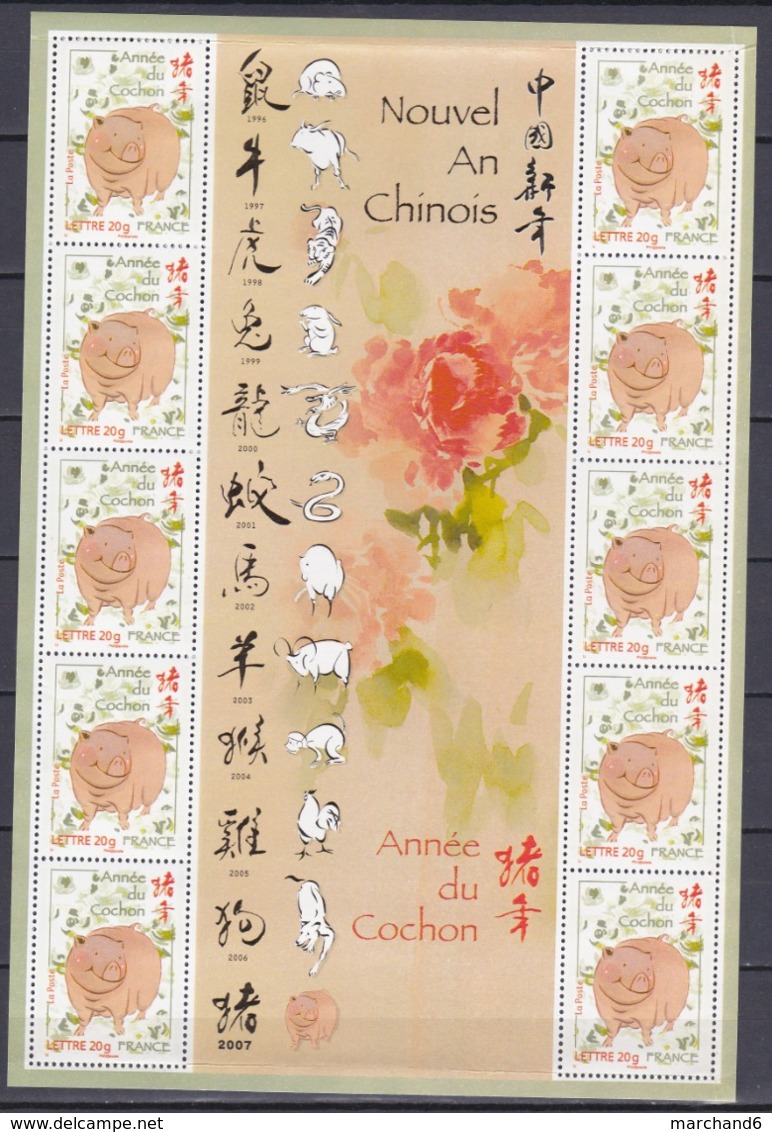 Année
du
Cochon
猪年
La Poste
LETTRE 20g FRANCE
Année
du
Cochon
猪年
La Poste
LETTRE 20g FRANCE
Année
du
Cochon
猪年
La Poste
LETTRE 20g FRANCE
Année
du
Cochon
猪年
La Poste
LETTRE 20g FRANCE
Année
du
Cochon
猪年
La Poste
LETTRE 20g FRANCE
鼠
1996
牛
1997
虎
1998
兔
1999
龍
2000
蛇
2001
馬
2002
羊
2003
猴
2004
雞
2005
狗
2006
猪
2007
Nouvel
An
Chinois
中國新年
Année
du
Cochon
猪年
Année
du
Cochon
猪年
La Poste
LETTRE 20g FRANCE
Année
du
Cochon
猪年
La Poste
LETTRE 20g FRANCE
Année
du
Cochon
猪年
La Poste
LETTRE 20g FRANCE
Année
du
Cochon
猪年
La Poste
LETTRE 20g FRANCE
Année
du
Cochon
猪年
La Poste
LETTRE 20g FRANCE
marchand6